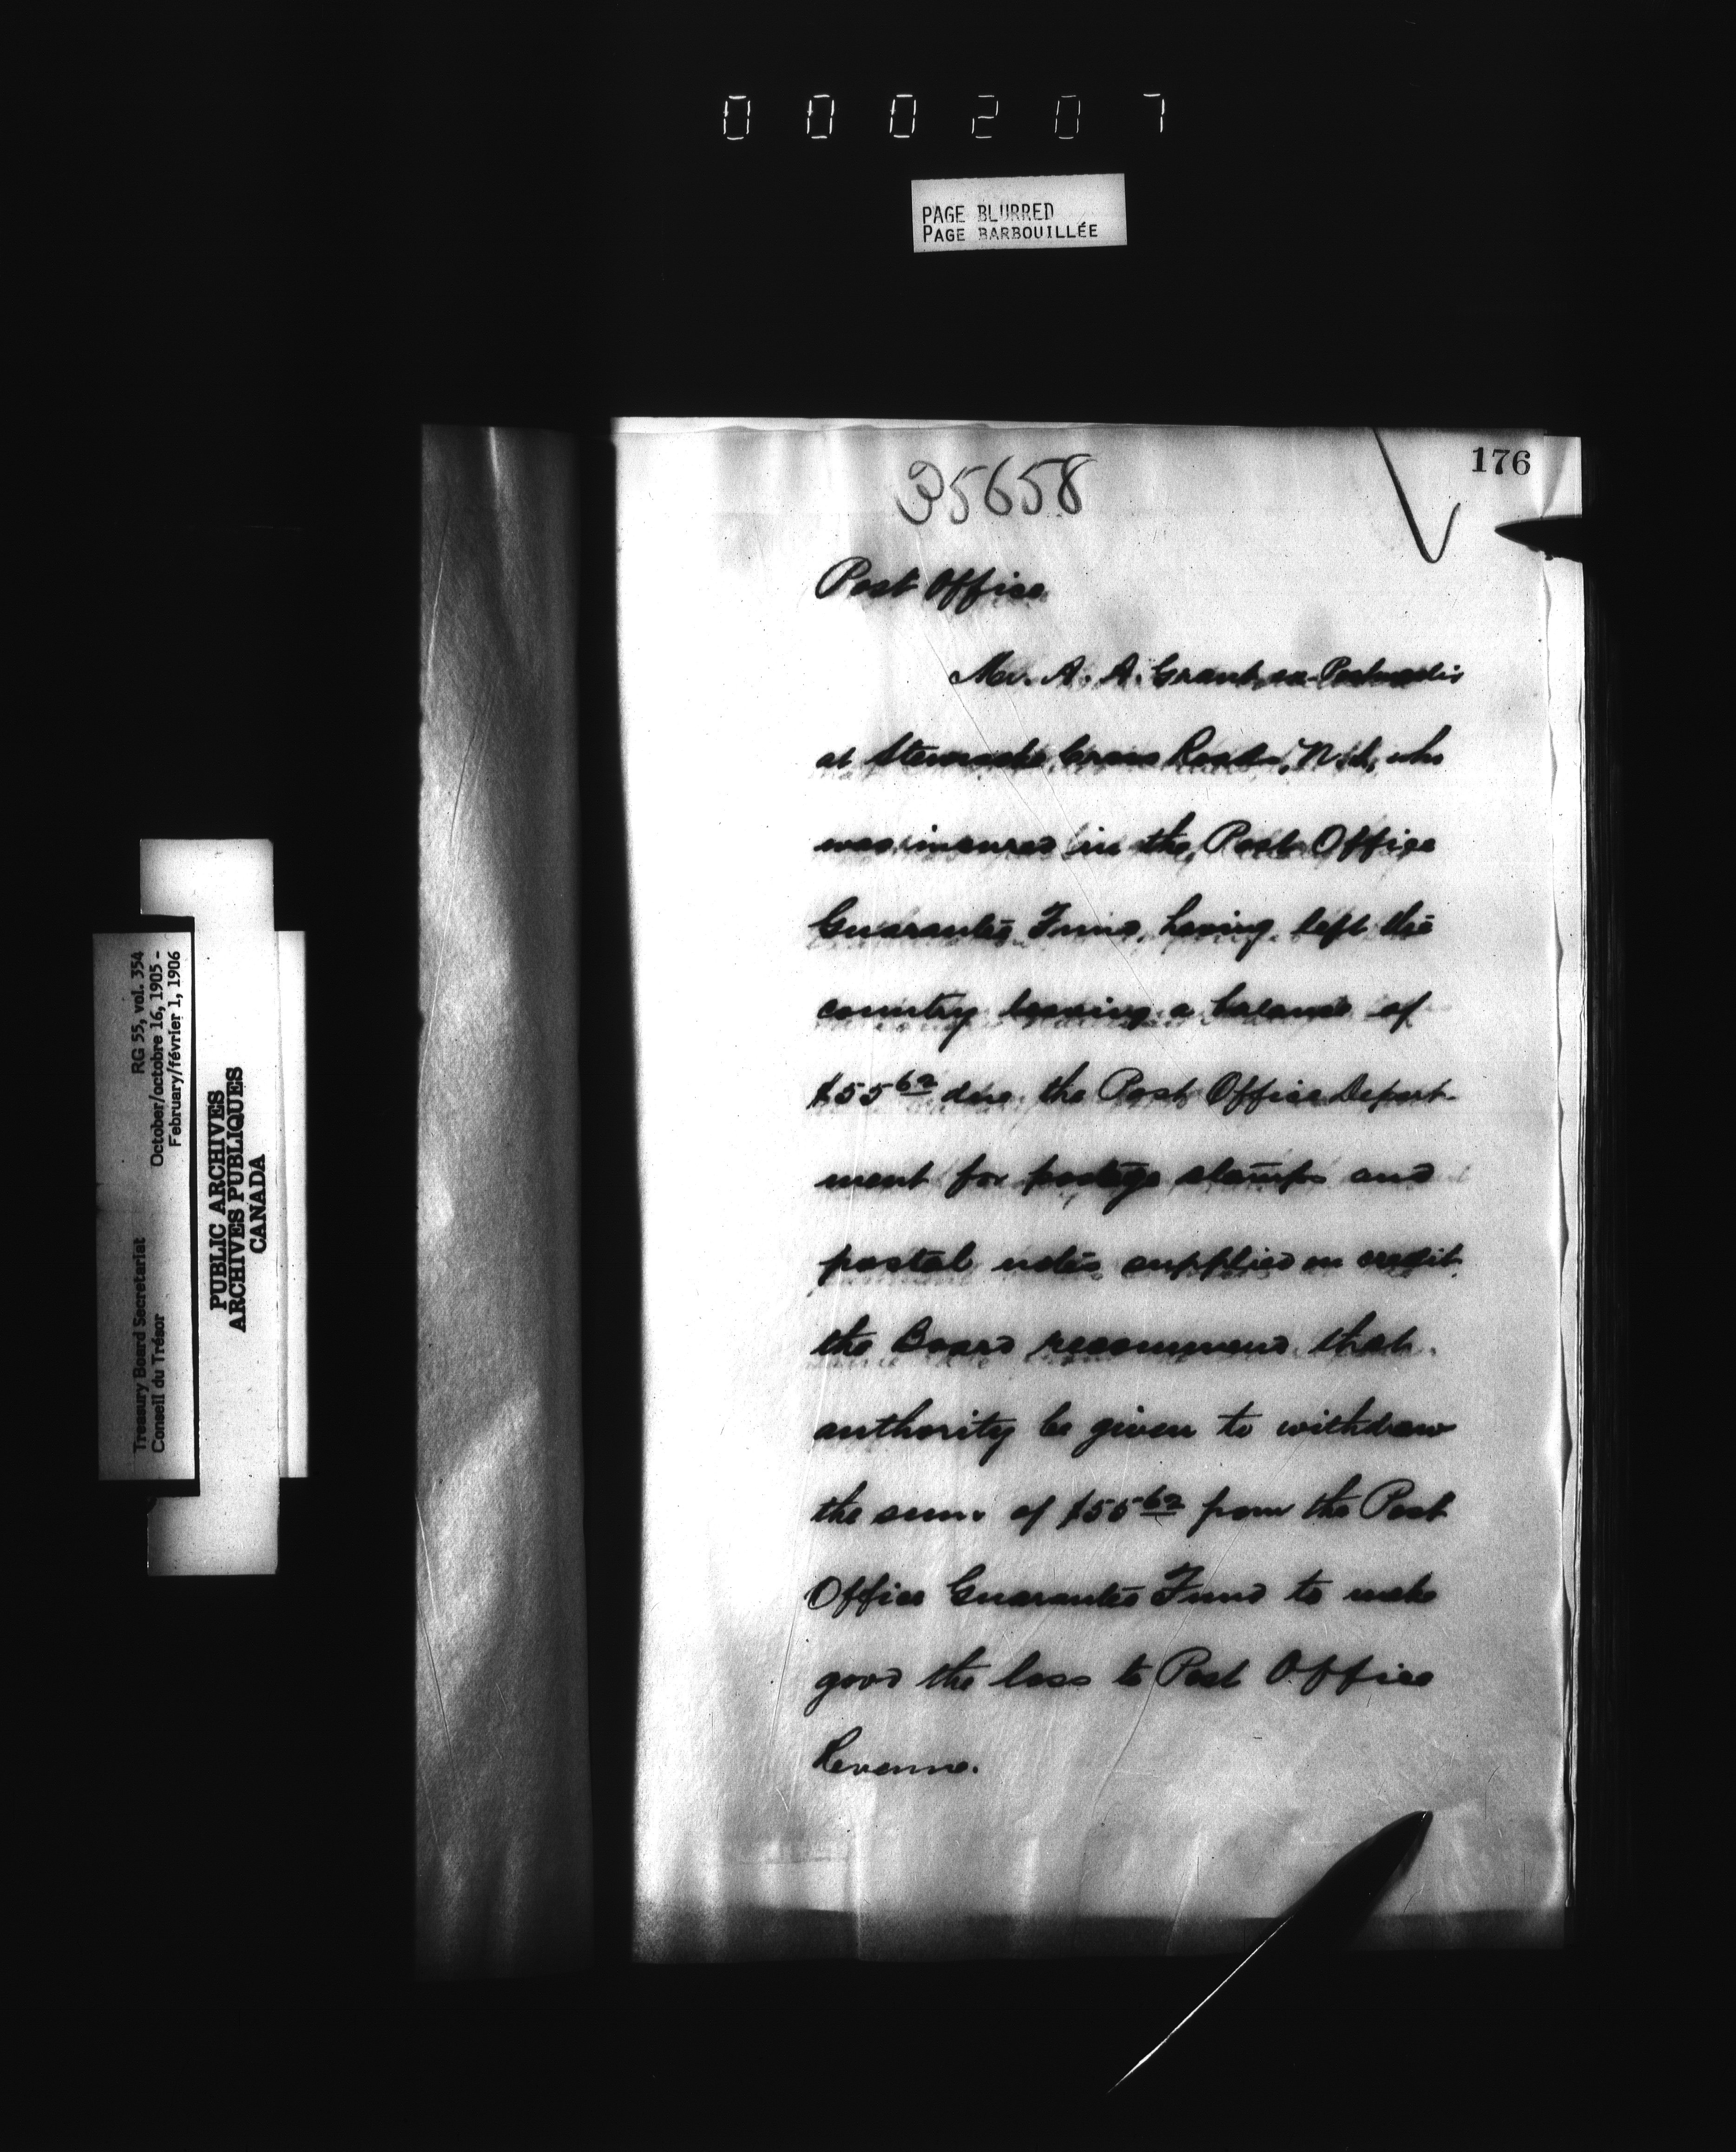 000207
PAGE BLURRED
PAGE BARBOUILLÉE
176
35658
Post Office
Mr. A. A. Grant, ex-Postmaster
at Cross Roads, who
was insured in the Post Office
Guarantee Fund, having left the
country leaving a balance of
$55 62 due the Post Office Depart-
ment for postage stamps and
postal notes supplied on credit
the Board recommend that
authority be given to withdraw
the sum of $55 62 from the Post
Office Guarantee Fund to make
good the loss to Post Office
Revenue.
Treasury Board Secretariat RG 55, vol. 354
Conseil du Trésor October/octobre 16, 1905 -
February/février 1, 1906
PUBLIC ARCHIVES
ARCHIVES PUBLIQUES
CANADA